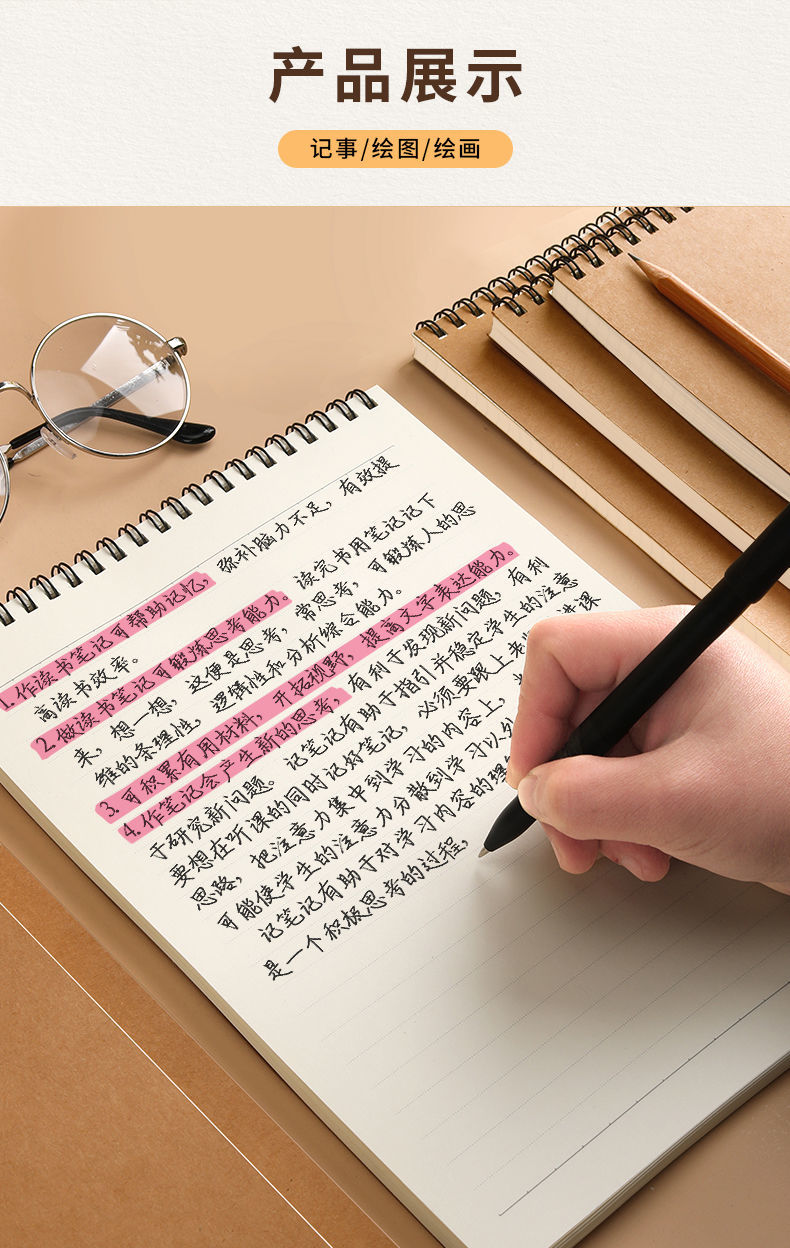 产品展示
记事/绘图/绘画
1.作读书笔记可帮助记忆,弥补脑力不足,有效提
高读书效率。
2.做读书笔记可锻炼思考能力。读完书用笔记记下
来,想一想,这便是思考,常思考,可锻炼人的思
维的条理性,逻辑性和分析综合能力。
3.可积累有用材料,开拓视野,提高文字表达能力。
4.作笔记会产生新的思考,有利于发现新问题,有利
于研究新问题。记笔记有助于指引并稳定学生的注意
要想在听课的同时记好笔记,必须要跟上老讲课
思路,把注意力集中到学习的内容上,
可能使学生的注意力分散到学习以外
记笔记有助于对学习内容的理
是一个积极思考的过程,